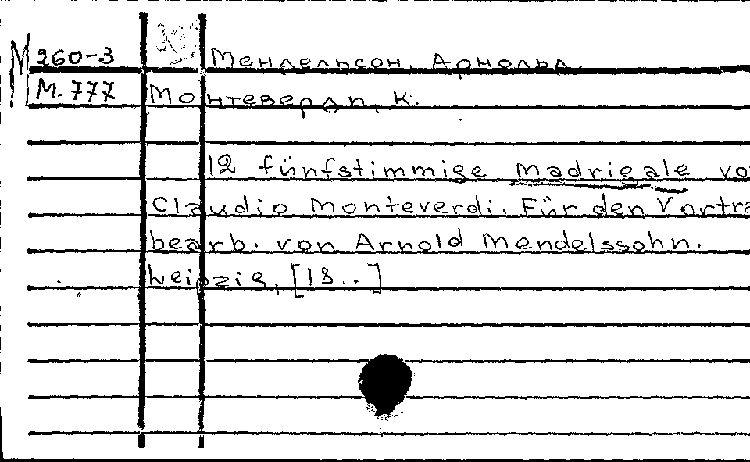 М 260-3 Мендельсон, Арнольд.
М. 777 Монтеверди, К.
12 fünfstimmige Madrigale vo
Claudio Monteverdi. Für den Vortra
bearb. von Arnold Mendelssohn.
Leipzig, [18..]